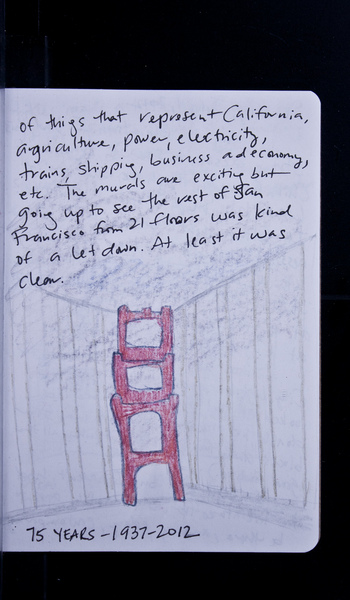 of things that represent California,
agriculture, power, electricity,
trains, shipping, business adeconomy,
etc. The murals are exciting but
going up to see the rest of San
Francisco from 21 floors was kind
of a let down. At least it was
clear.
75 YEARS - 1937-2012